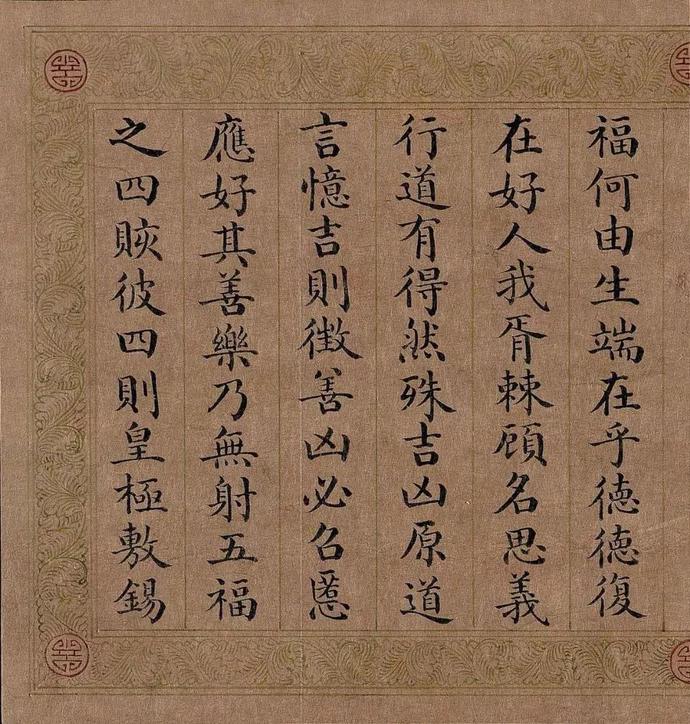 福何由生端在乎徳徳復
在好人我胥棘顧名思義
行道有得然殊吉凶原道
言憶吉則徵善凶必召慝
應好其善樂乃無射五福
之四賅彼四則皇極敷錫